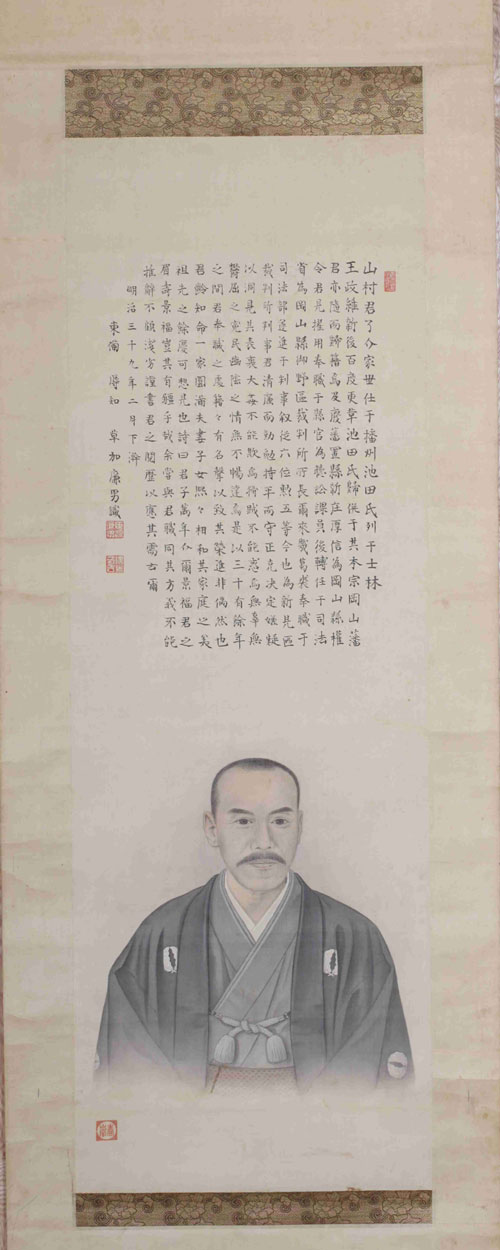 山村君了介家世仕于播州池田氏列于士林
王政維新後百度更革池田氏歸仕于其本宗岡山藩
君亦随而歸籍焉及廢藩置縣新庄厚信為岡山縣權
令君見擢用奉職于縣官為聴訟課員後轉任于司法
省為岡山縣御野區裁判所所長爾來幾葛裘奉職于
司法部遂進于判事叙従六位勲五等今也為新見區
裁判所判事君清廉而勤勉持平而守正克决定嫌疑
以洞見其表裏大姦不能欺焉猾賊不能惑焉無辜無
欝屈之寃民幽陰之情無不暢達焉是以三十有餘年
之間君奉職之處籍々有名聲以致其榮進非偶然也
君齢知命一家團欒夫妻子女熈々相和其家庭之美
祖先之餘慶可想見也詩曰君子萬年介爾景福君之
眉壽景福豈其有疆乎哉余嘗與君職同其方義不能
推辭不顧淺劣謹書君之閲歴以塞其需云爾
明治三十九年二月下澣
東備 辱知 草加廉男識